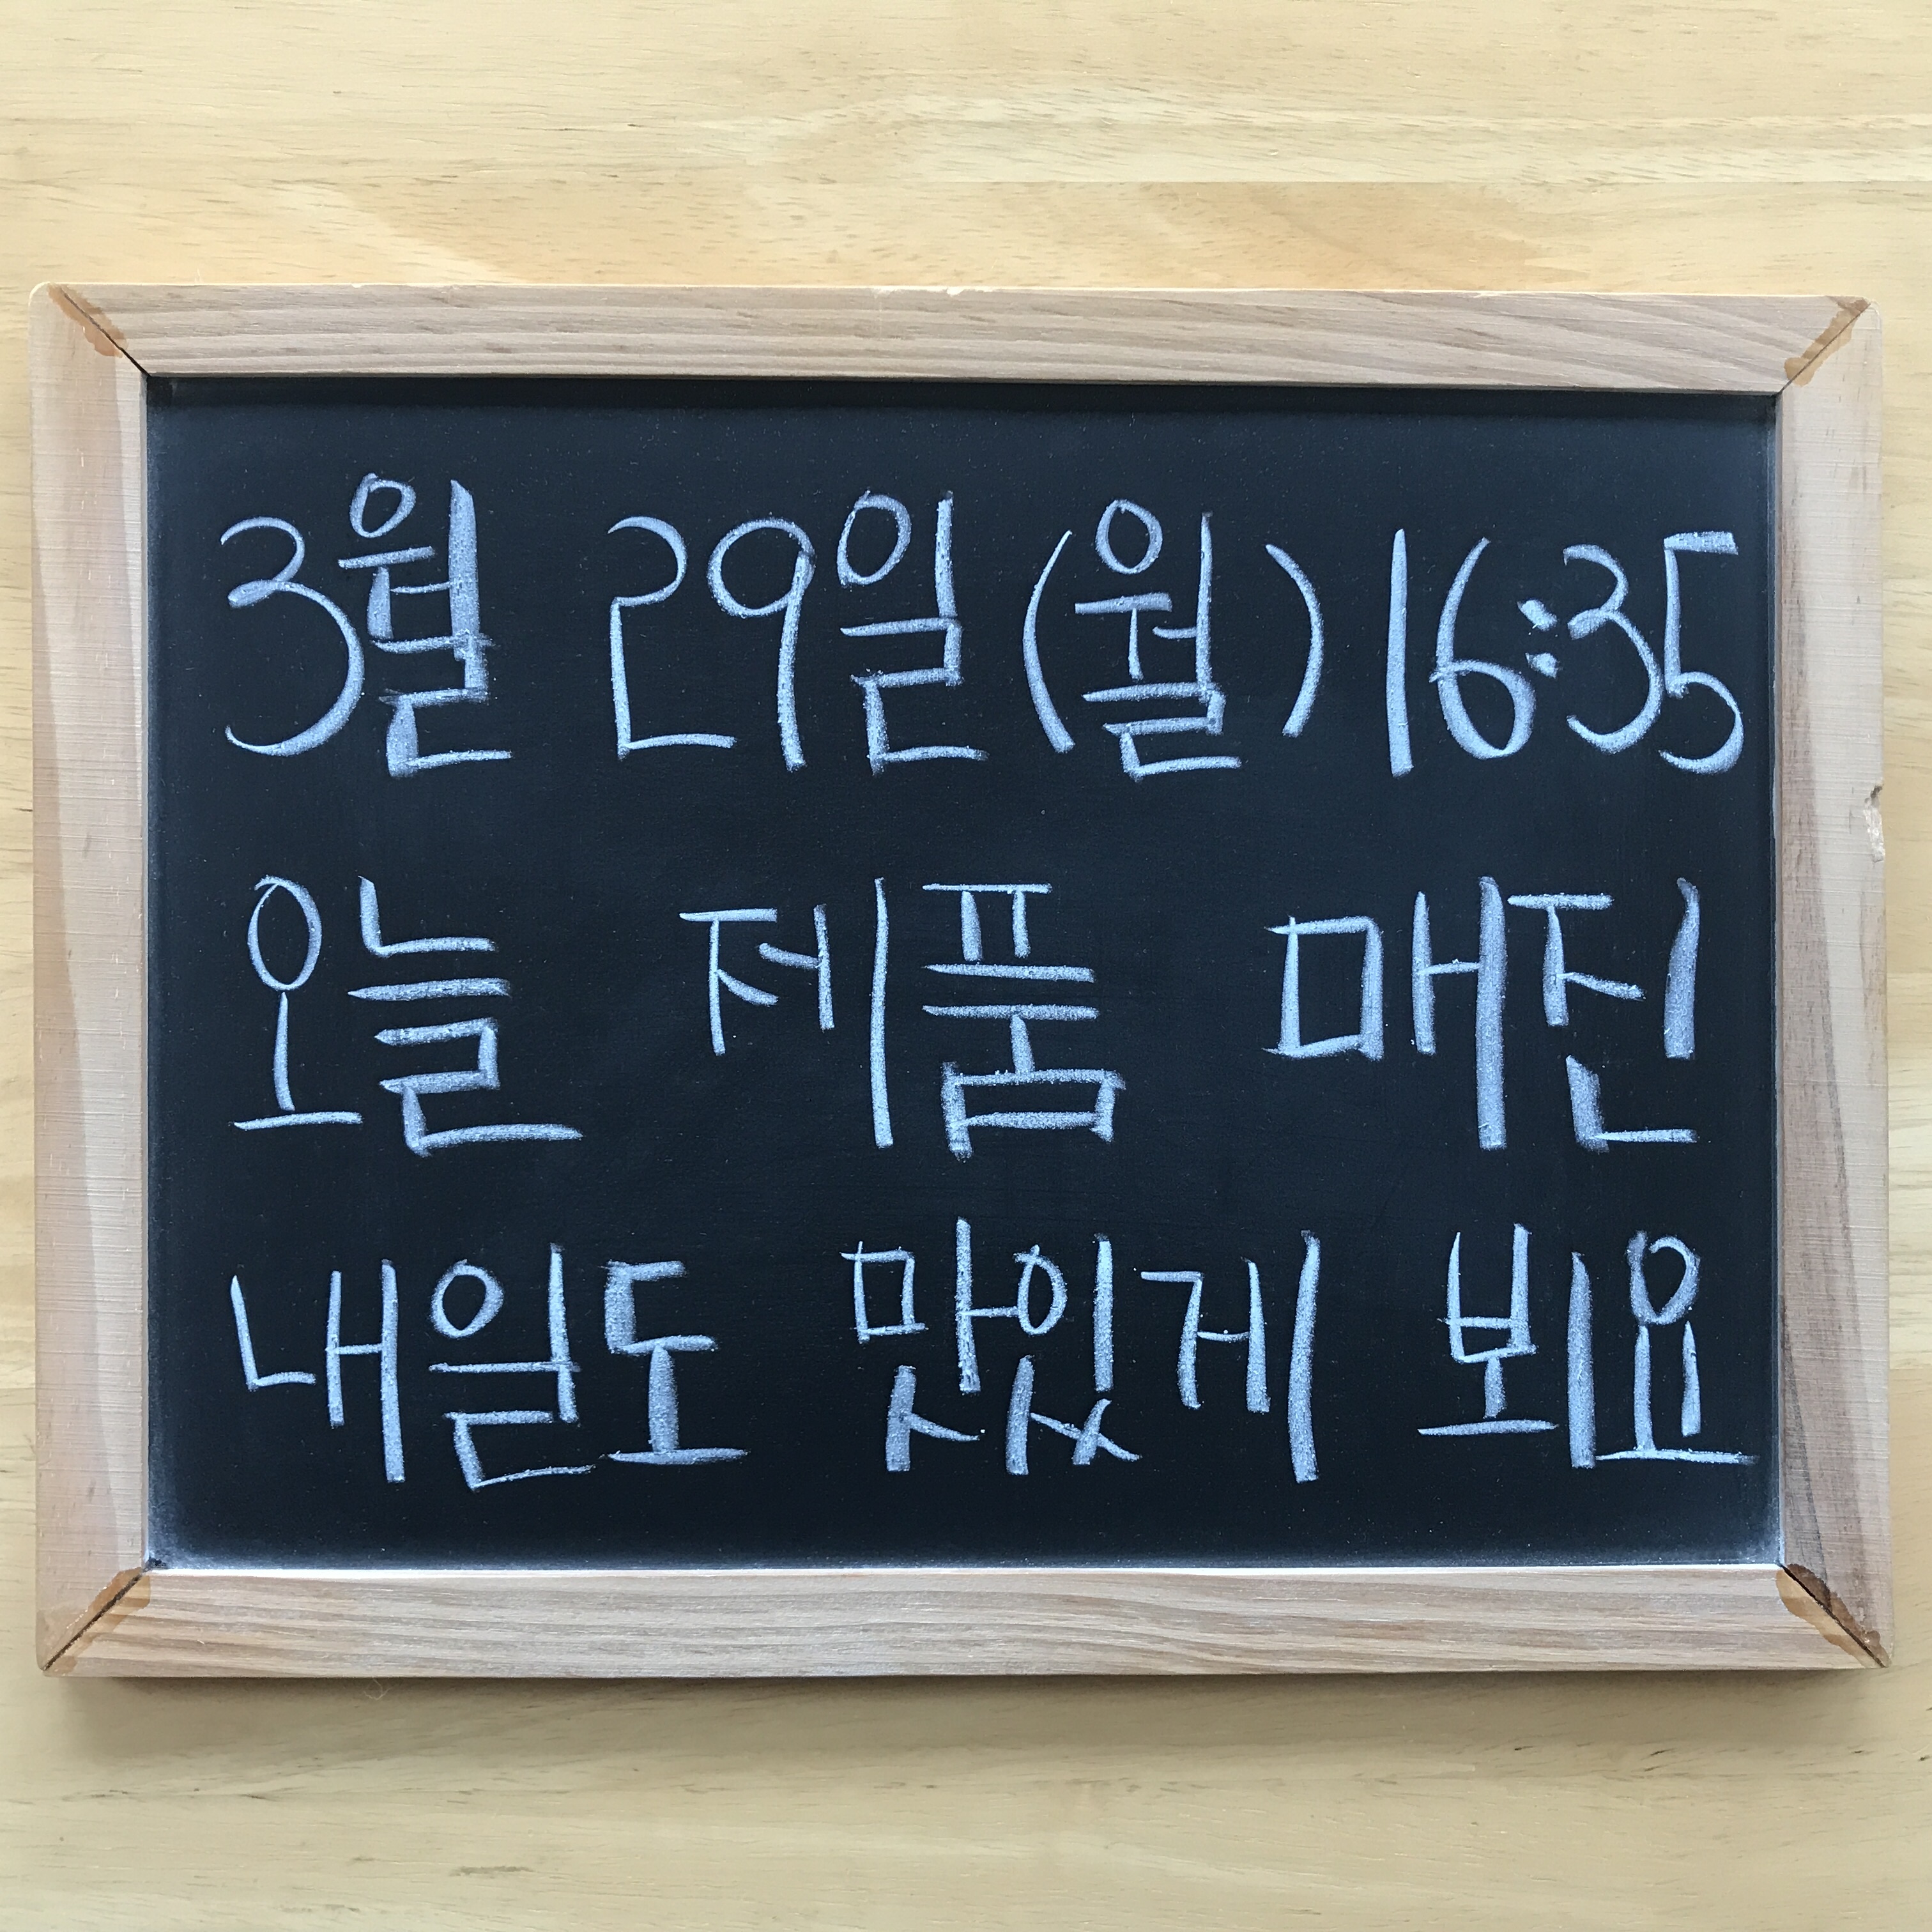 3월 29일(월) 16:35
오늘 제품 매진
내일도 맛있게 뵈요